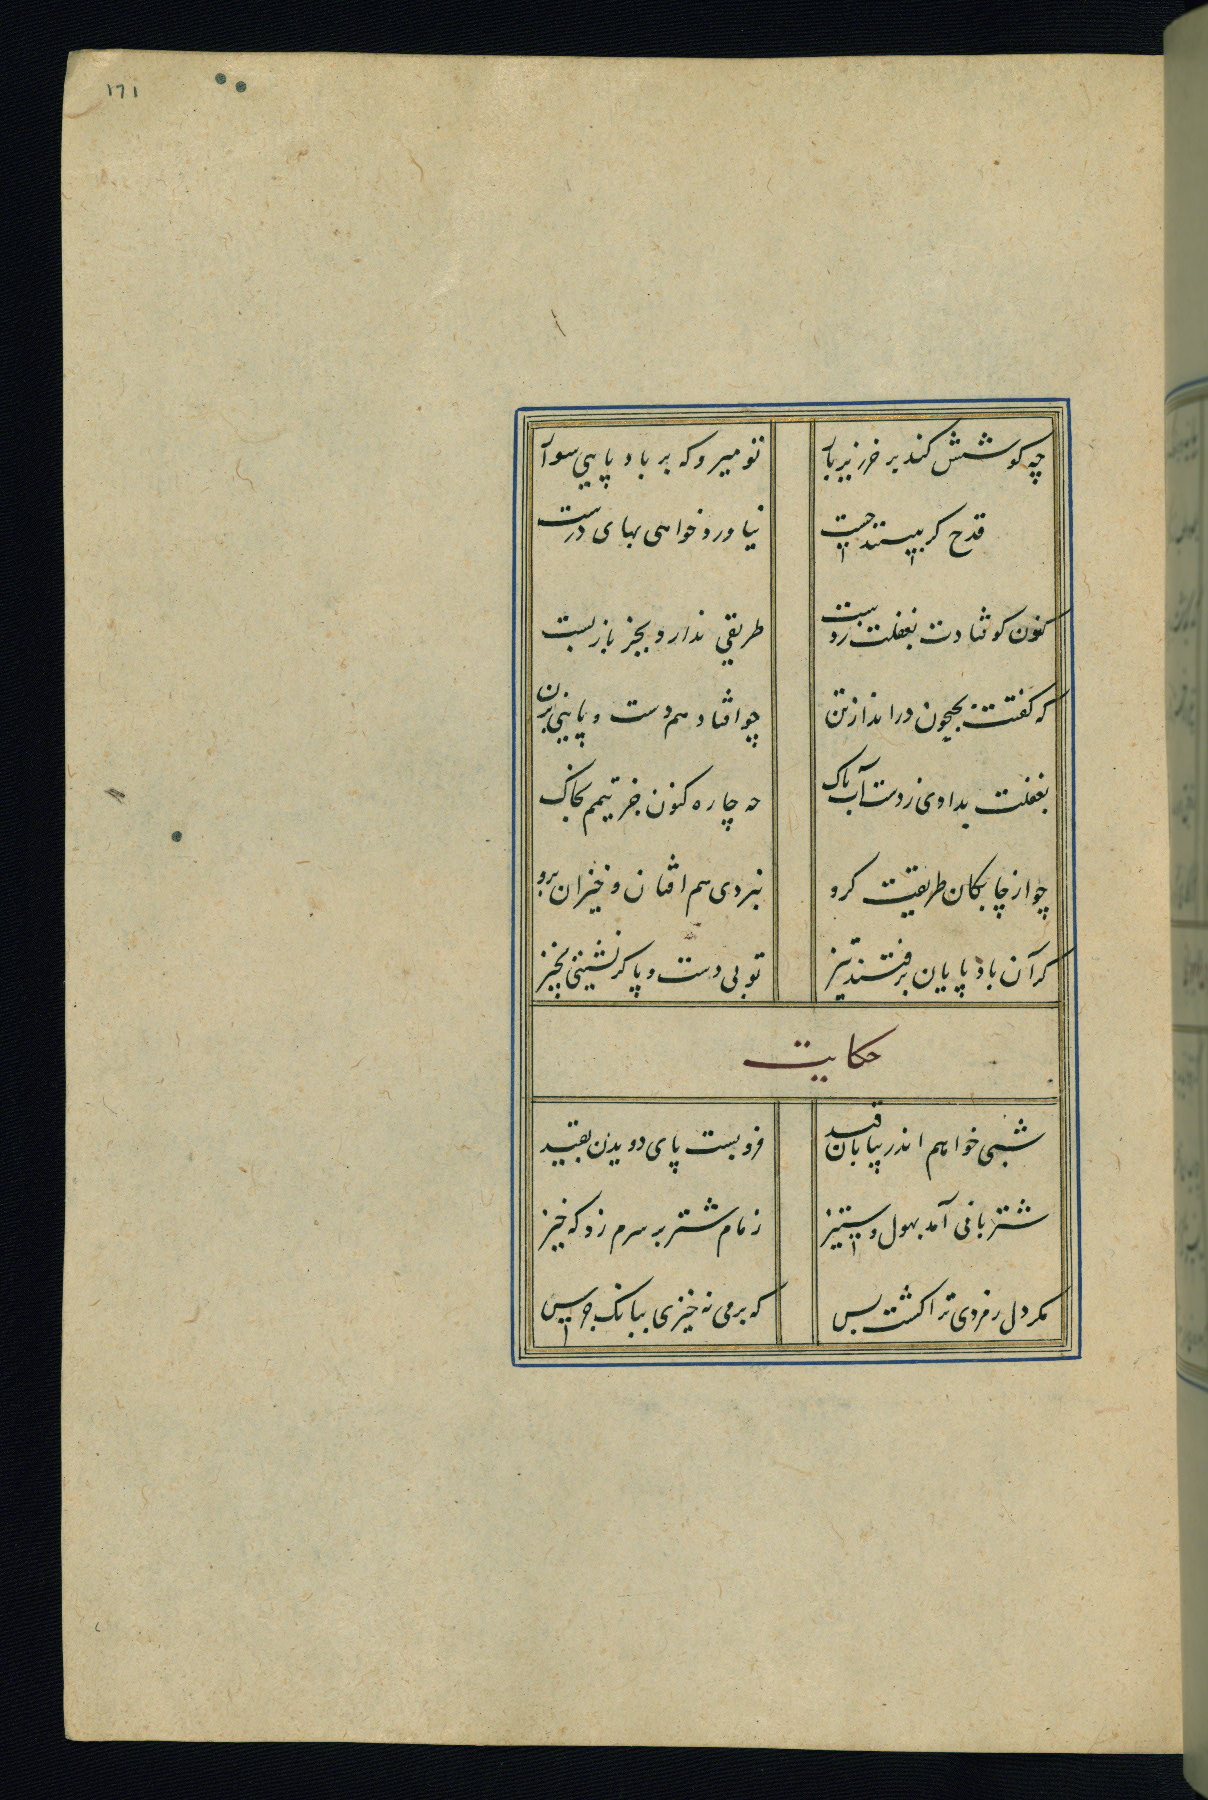 ١٦١
چه کوشش کند پر خر زیر بار تو میرو که بر باد پایی سوار
قدح کر ببستند چست نیاورد خواهی بهای درست
کنون کوفتادت بغفلت ز دست طریقی ندارد بجز باز بست
که کفتت بجیحون در انداز تن چو افتاد هم دست و پایی بزن
بغفلت بدادی ز دست آب پاک چه چاره کنون جز تیمم بخاک
چو از چابکان طریقت کرو نبردی هم افتان و خیزان برو
کر آن باد پایان برفتند تیز تو بی دست و پا کر نشینی بخیز
حکایت
شبی خوابم اندر بیابان فید فرو بست پای دویدن بقید
شتربانی آمد بهول و ستیز زمام شتر بر سرم زد که خیز
مکر دل بمردی ترا کشت پس که بر می نه خیزی ببانک جرس